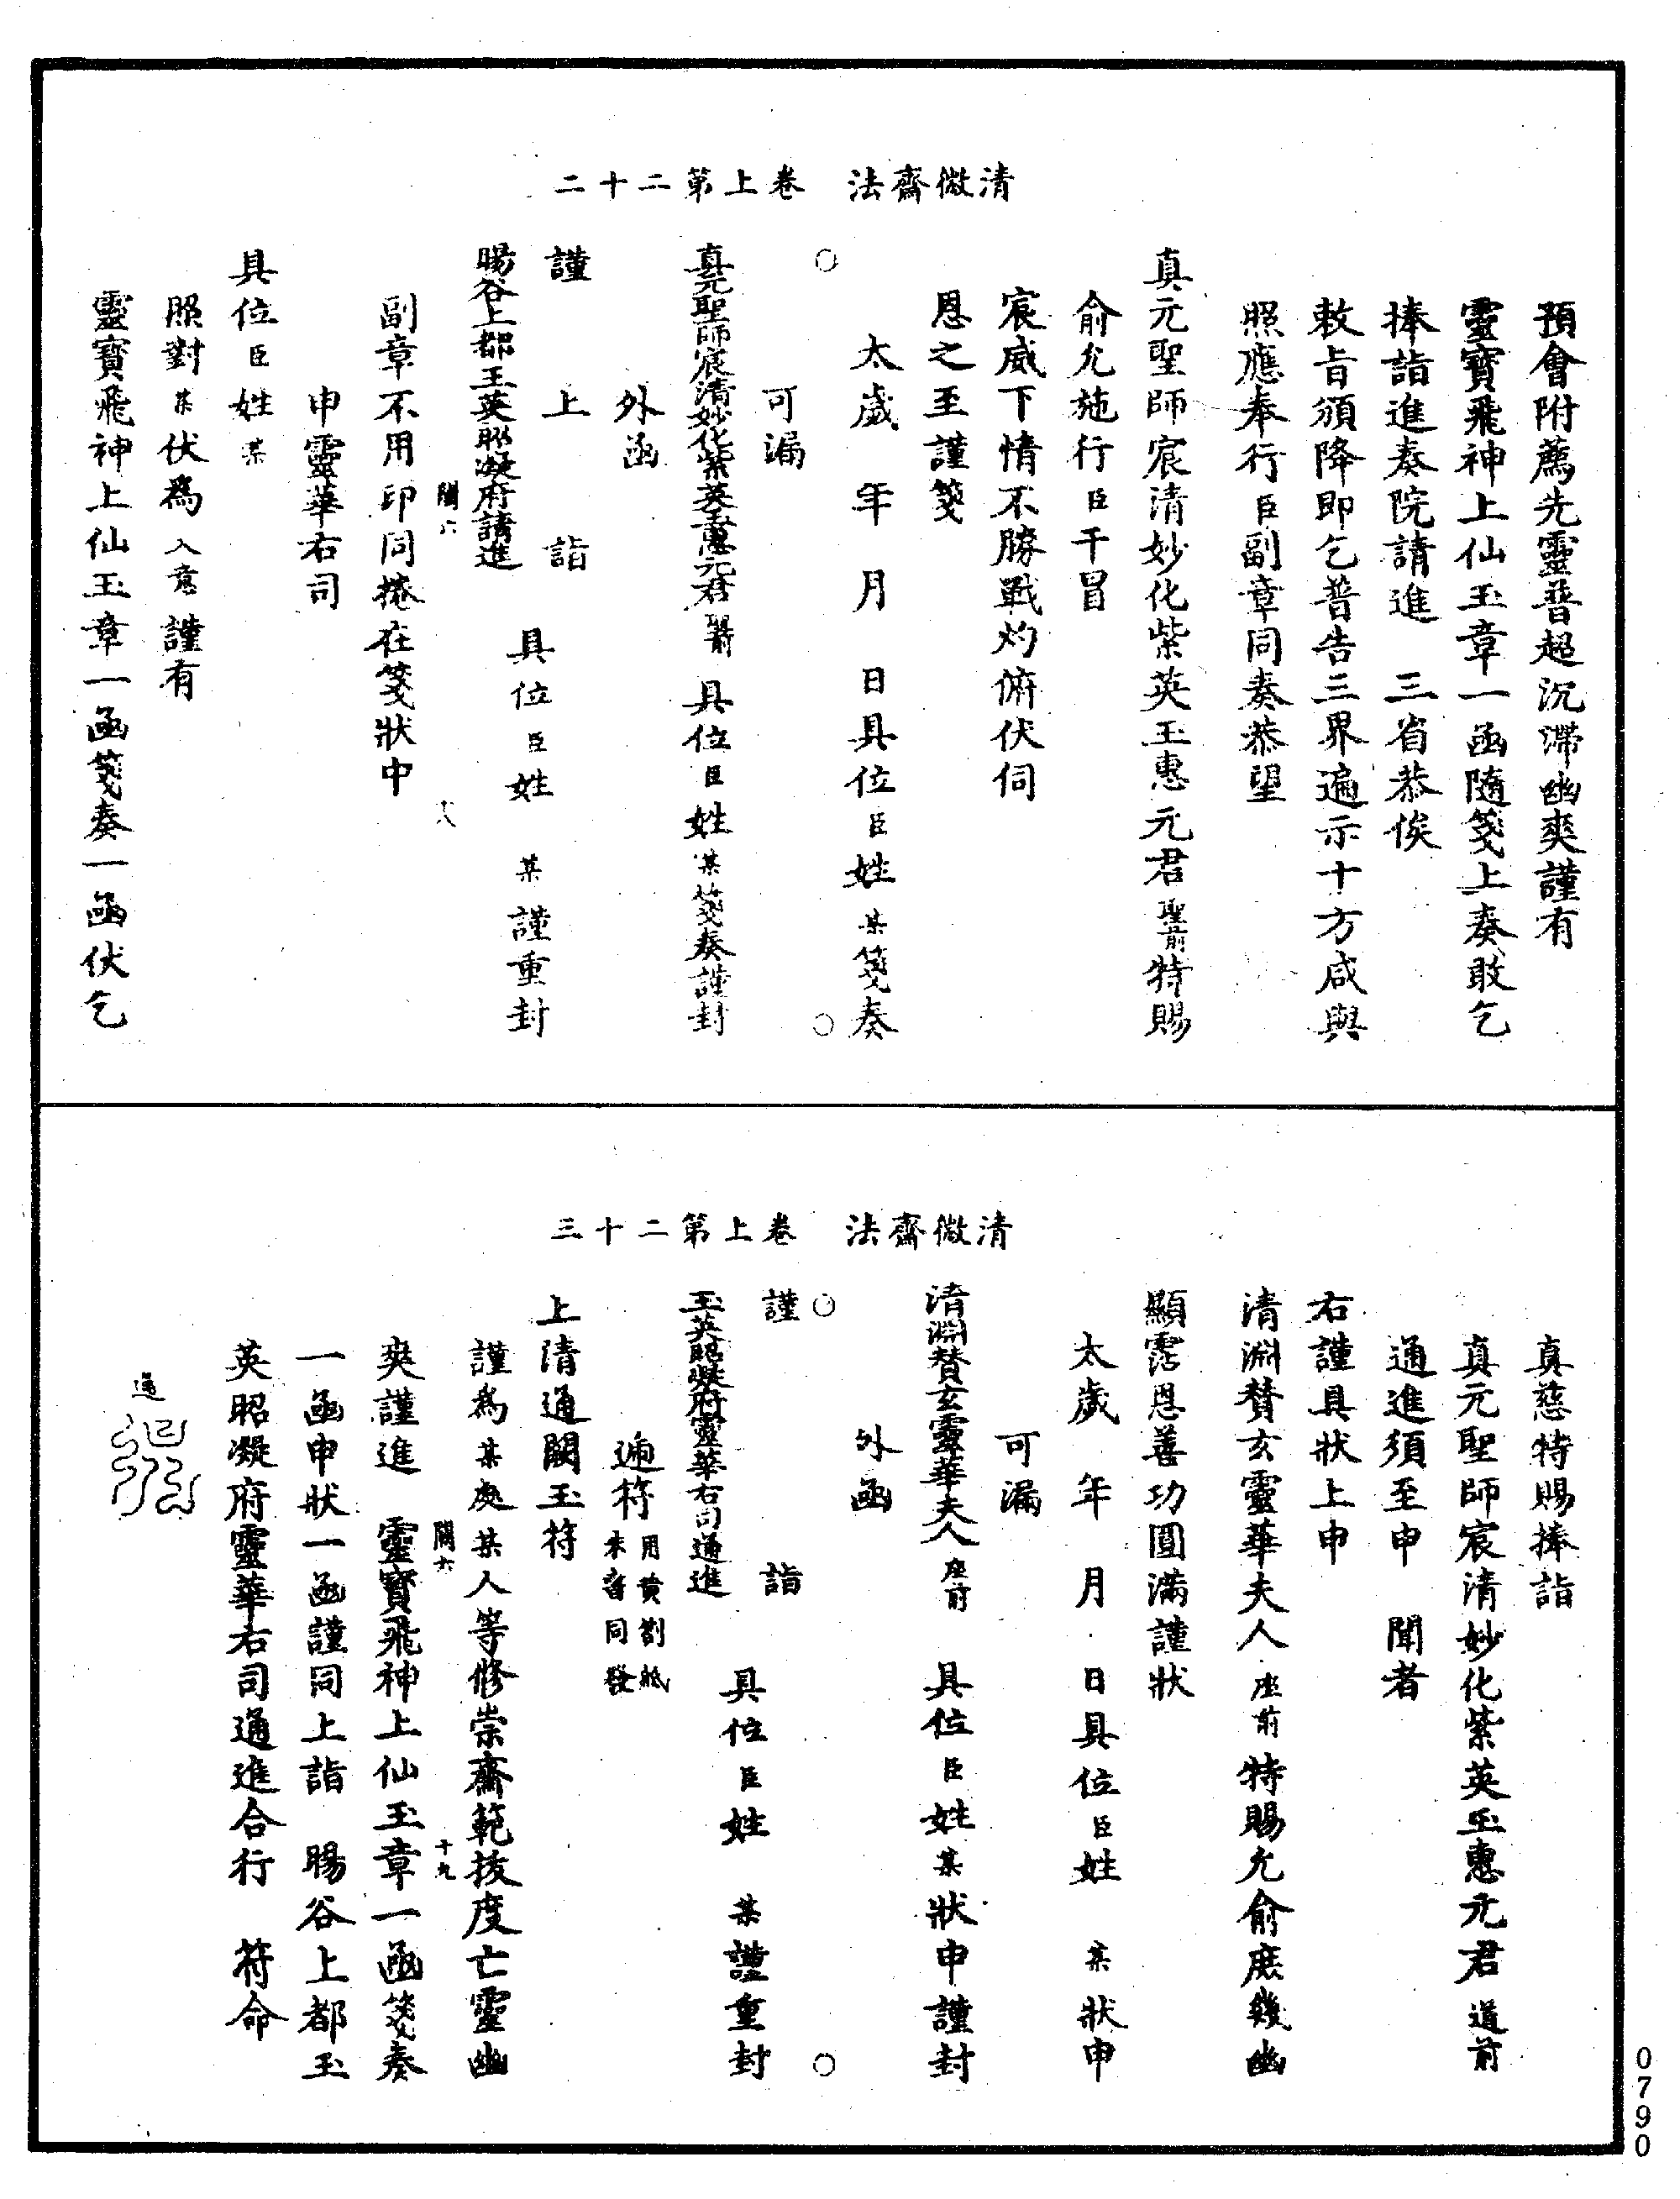 清微齋法　卷上第二十二
預會附薦先靈普超沉滯幽爽謹有
靈寶飛神上仙玉章一函隨箋上奏敢乞
捧詣進奏院請進　三省恭俟
敕旨頒降即乞普告三界遍示十方咸與
照應奉行臣副章同奏恭望
真元聖師宸清妙化紫英玉惠元君聖前特賜
俞允施行臣干冒
宸威下情不勝戰灼俯伏伺
恩之至謹箋
太歲　年　月　日具位臣姓某箋奏
○　○
可漏
真元聖師宸清妙化紫英玉惠元君聖前　具位臣姓某箋奏謹封
外函
謹　上　詣
具位臣姓　某謹重封
暘谷上都玉英昭凝府請進
關六　十八
副章不用印同捲在箋狀中
申靈華右司
具位臣姓某
照對某伏為入意謹有
靈寶飛神上仙玉章一函箋奏一函伏乞
清微齋法　卷上第二十三
真慈特賜捧詣
真元聖師宸清妙化紫英玉惠元君道前
通進須至申　聞者
右謹具狀上申
清淵贊玄靈華夫人座前特賜允俞庶幾幽
顯霑恩善功圓滿謹狀
太歲　年　月　日具位臣姓　某狀申
可漏
清淵贊玄靈華夫人座前　具位臣姓某狀申謹封
外函
○　○
謹　詣
具位臣姓　某謹重封
玉英昭凝府靈華右司通進
遞符用黃劄紙朱書同發
上清通闕玉符
謹為某處某人等修崇齋範拔度亡靈幽
關六　十九
爽謹進　靈寶飛神上仙玉章一函箋奏
一函申狀一函謹同上詣　暘谷上都玉
英昭凝府靈華右司通進合行　符命
通
0790